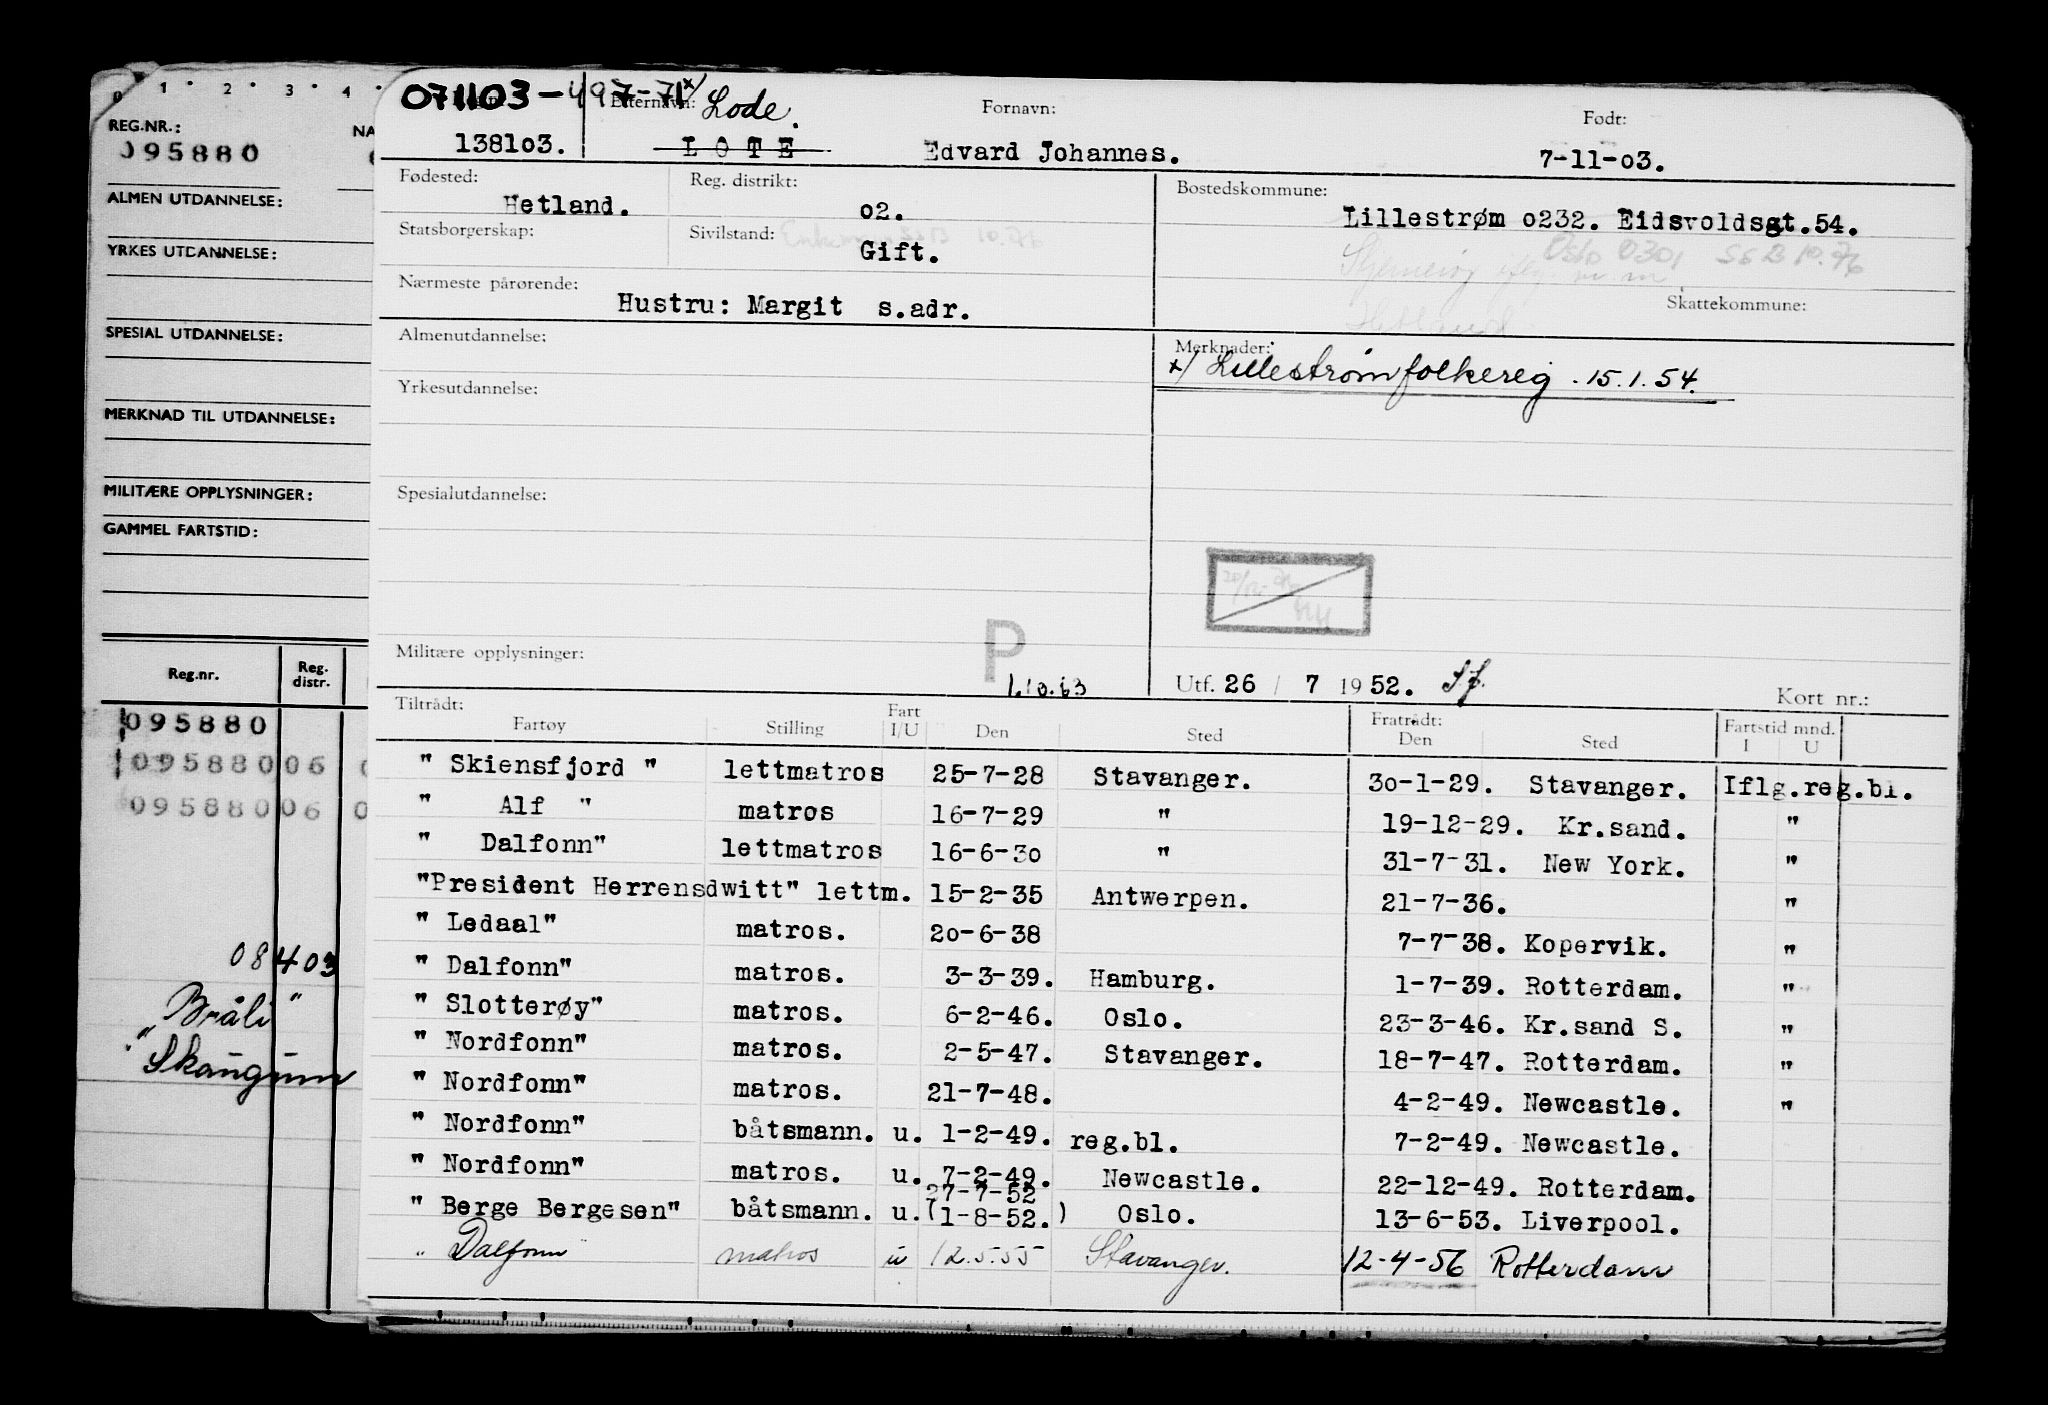 0 1 2 3 4
REG.NR.: NA
095880
ALMEN UTDANNELSE:
YRKES UTDANNELSE:
SPESIAL UTDANNELSE:
MERKNAD TIL UTDANNELSE:
MILITÆRE OPPLYSNINGER:
GAMMEL FARTSTID:
Reg.nr. Reg. distr.
095880
095880 06
095880 06
08403
"Bråli"
"Skaugum
071103-497-71 x/ Lode.
Etternavn: Fornavn: Født:
138103. LOTE Edvard Johannes. 7-11-03.
Fødested: Reg. distrikt: Bostedskommune:
Hetland. 02. Lillestrøm 0232. Eidsvoldsgt.54.
Statsborgerskap: Sivilstand: 10.76 Oslo 0301 SSB 10.76
Gift.
Nærmeste pårørende: Skattekommune:
Hustru: Margit s.adr. Hetland
Almenutdannelse: Merknader:
x/ Lillestrøm folkereg. 15.1.54.
Yrkesutdannelse:
Spesialutdannelse:
P
Militære opplysninger:
1.10.63 Utf. 26 / 7 1952. Kort nr.:
Tiltrådt: Fratrådt:
Fartøy Stilling Fart I/U Den Sted Den Sted Fartstid mnd. I U
" Skiensfjord " lettmatros 25-7-28 Stavanger. 30-1-29. Stavanger. Iflg.reg.bl.
" Alf " matros 16-7-29 " 19-12-29. Kr.sand. "
" Dalfonn" lettmatros 16-6-30 " 31-7-31. New York. "
"President Herrensdwitt" lettm. 15-2-35 Antwerpen. 21-7-36. "
" Ledaal" matros. 20-6-38 7-7-38. Kopervik. "
" Dalfonn" matros. 3-3-39. Hamburg. 1-7-39. Rotterdam. "
" Slotterøy" matros. 6-2-46. Oslo. 23-3-46. Kr.sand S. "
" Nordfonn" matros. 2-5-47. Stavanger. 18-7-47. Rotterdam. "
" Nordfonn" matros. 21-7-48. 4-2-49. Newcastle. "
" Nordfonn" båtsmann. u. 1-2-49. reg.bl. 7-2-49. Newcastle.
" Nordfonn" matros. u. 7-2-49. Newcastle. 22-12-49. Rotterdam.
27-7-52
" Berge Bergesen" båtsmann. u. (1-8-52.) Oslo. 13-6-53. Liverpool.
" Dalfonn" matros u 12.5.55 Stavanger. 12-4-56 Rotterdam